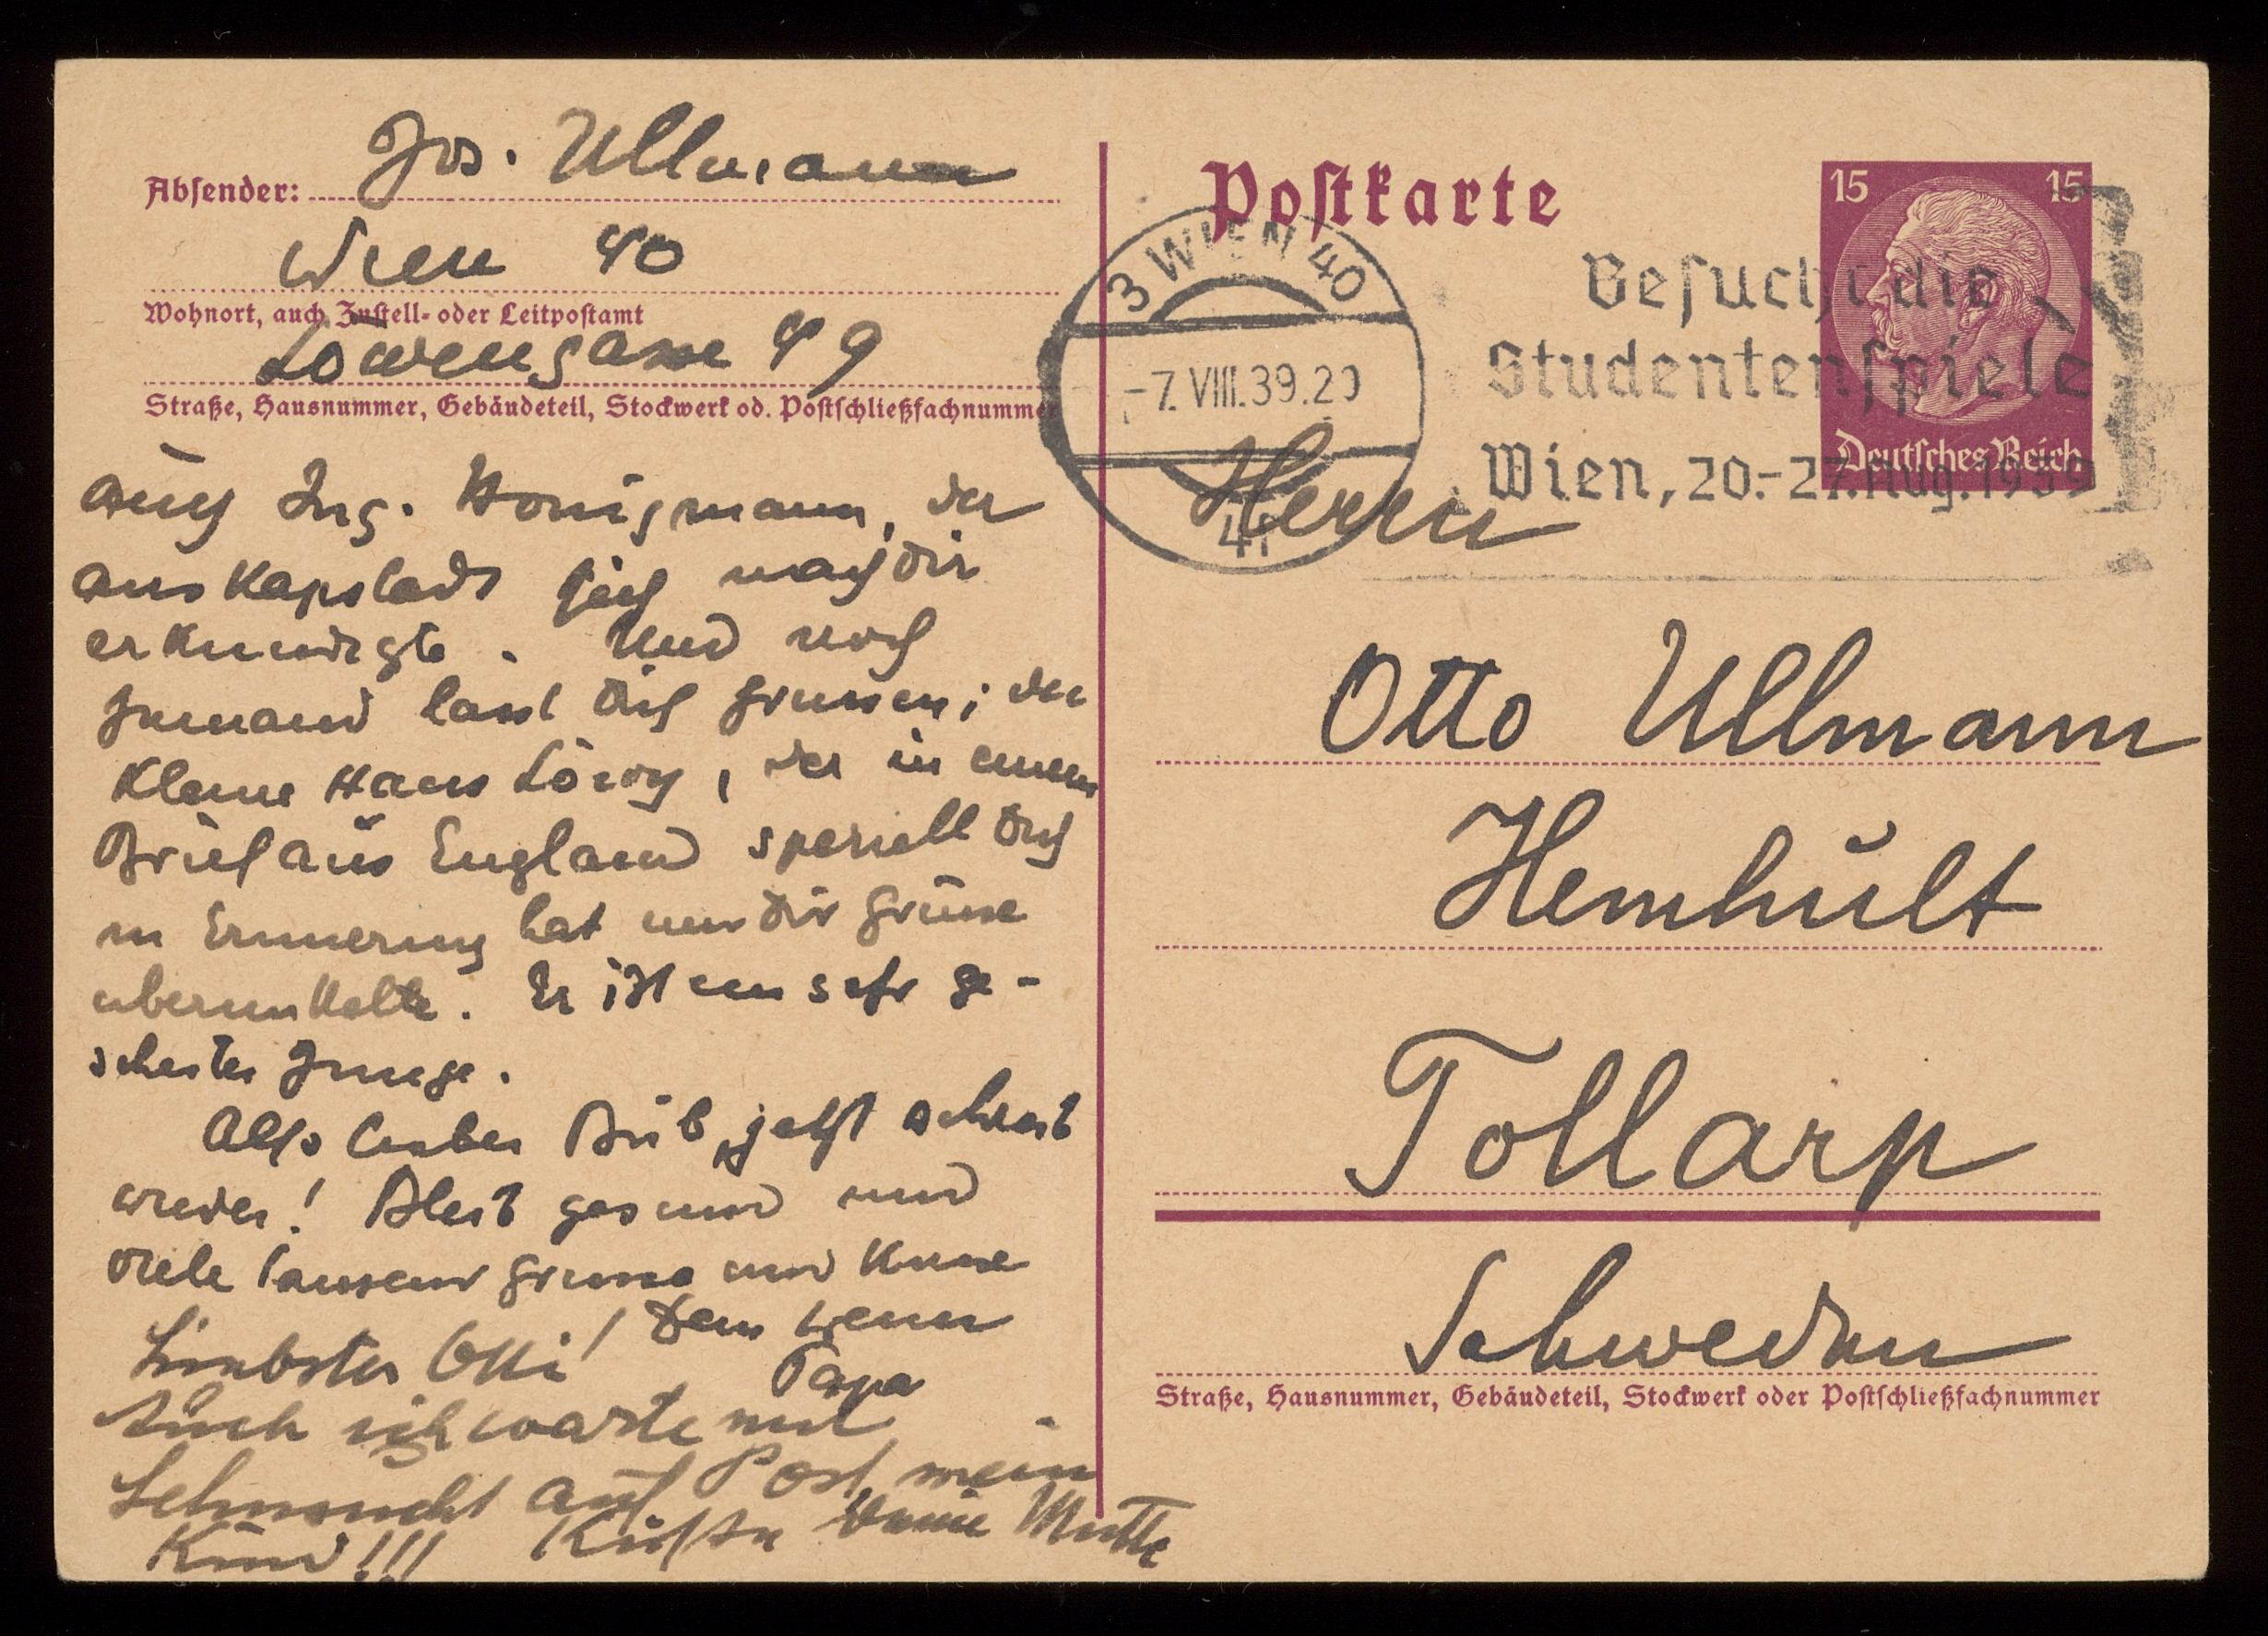 Jos. Ullmann
Absender:
Wien 40
Wohnort, auch Zustell- oder Leitpostamt
Löwengasse 49
Straße, Hausnummer, Gebäudeteil, Stockwerk od. Postschließfachnummer
Postkarte
15 15
Deutsches Reich
3 WIEN 40
-7. VIII. 39. 20
Besucht die
Studentenspiele
Wien, 20.-27. Aug. 1939
auch Ing. Honigmann, der
aus Kapstadt sich nach dir
erkundigte. Und noch
Jemand lasst dich grussen; der
kleine Hans Löwy, der in einem
Brief aus England speziell dich
in Erinnerung hat und dir Grüsse
ubermittelte. Er ist ein sehr ge-
scheiter Junge.
Also lieber Bub, jetzt schreib
wieder! Bleib gesund und
viele tausend Grusse und Kusse
Dein
Papa
Liebster Otti!
Auch ich warte mit
Sehnsucht auf Post mein
Kind!!! Küsse Deine Mutti
Herrn
Otto Ullmann
Hemhult
Tollarp
Schweden
Straße, Hausnummer, Gebäudeteil, Stockwerk oder Postschließfachnummer